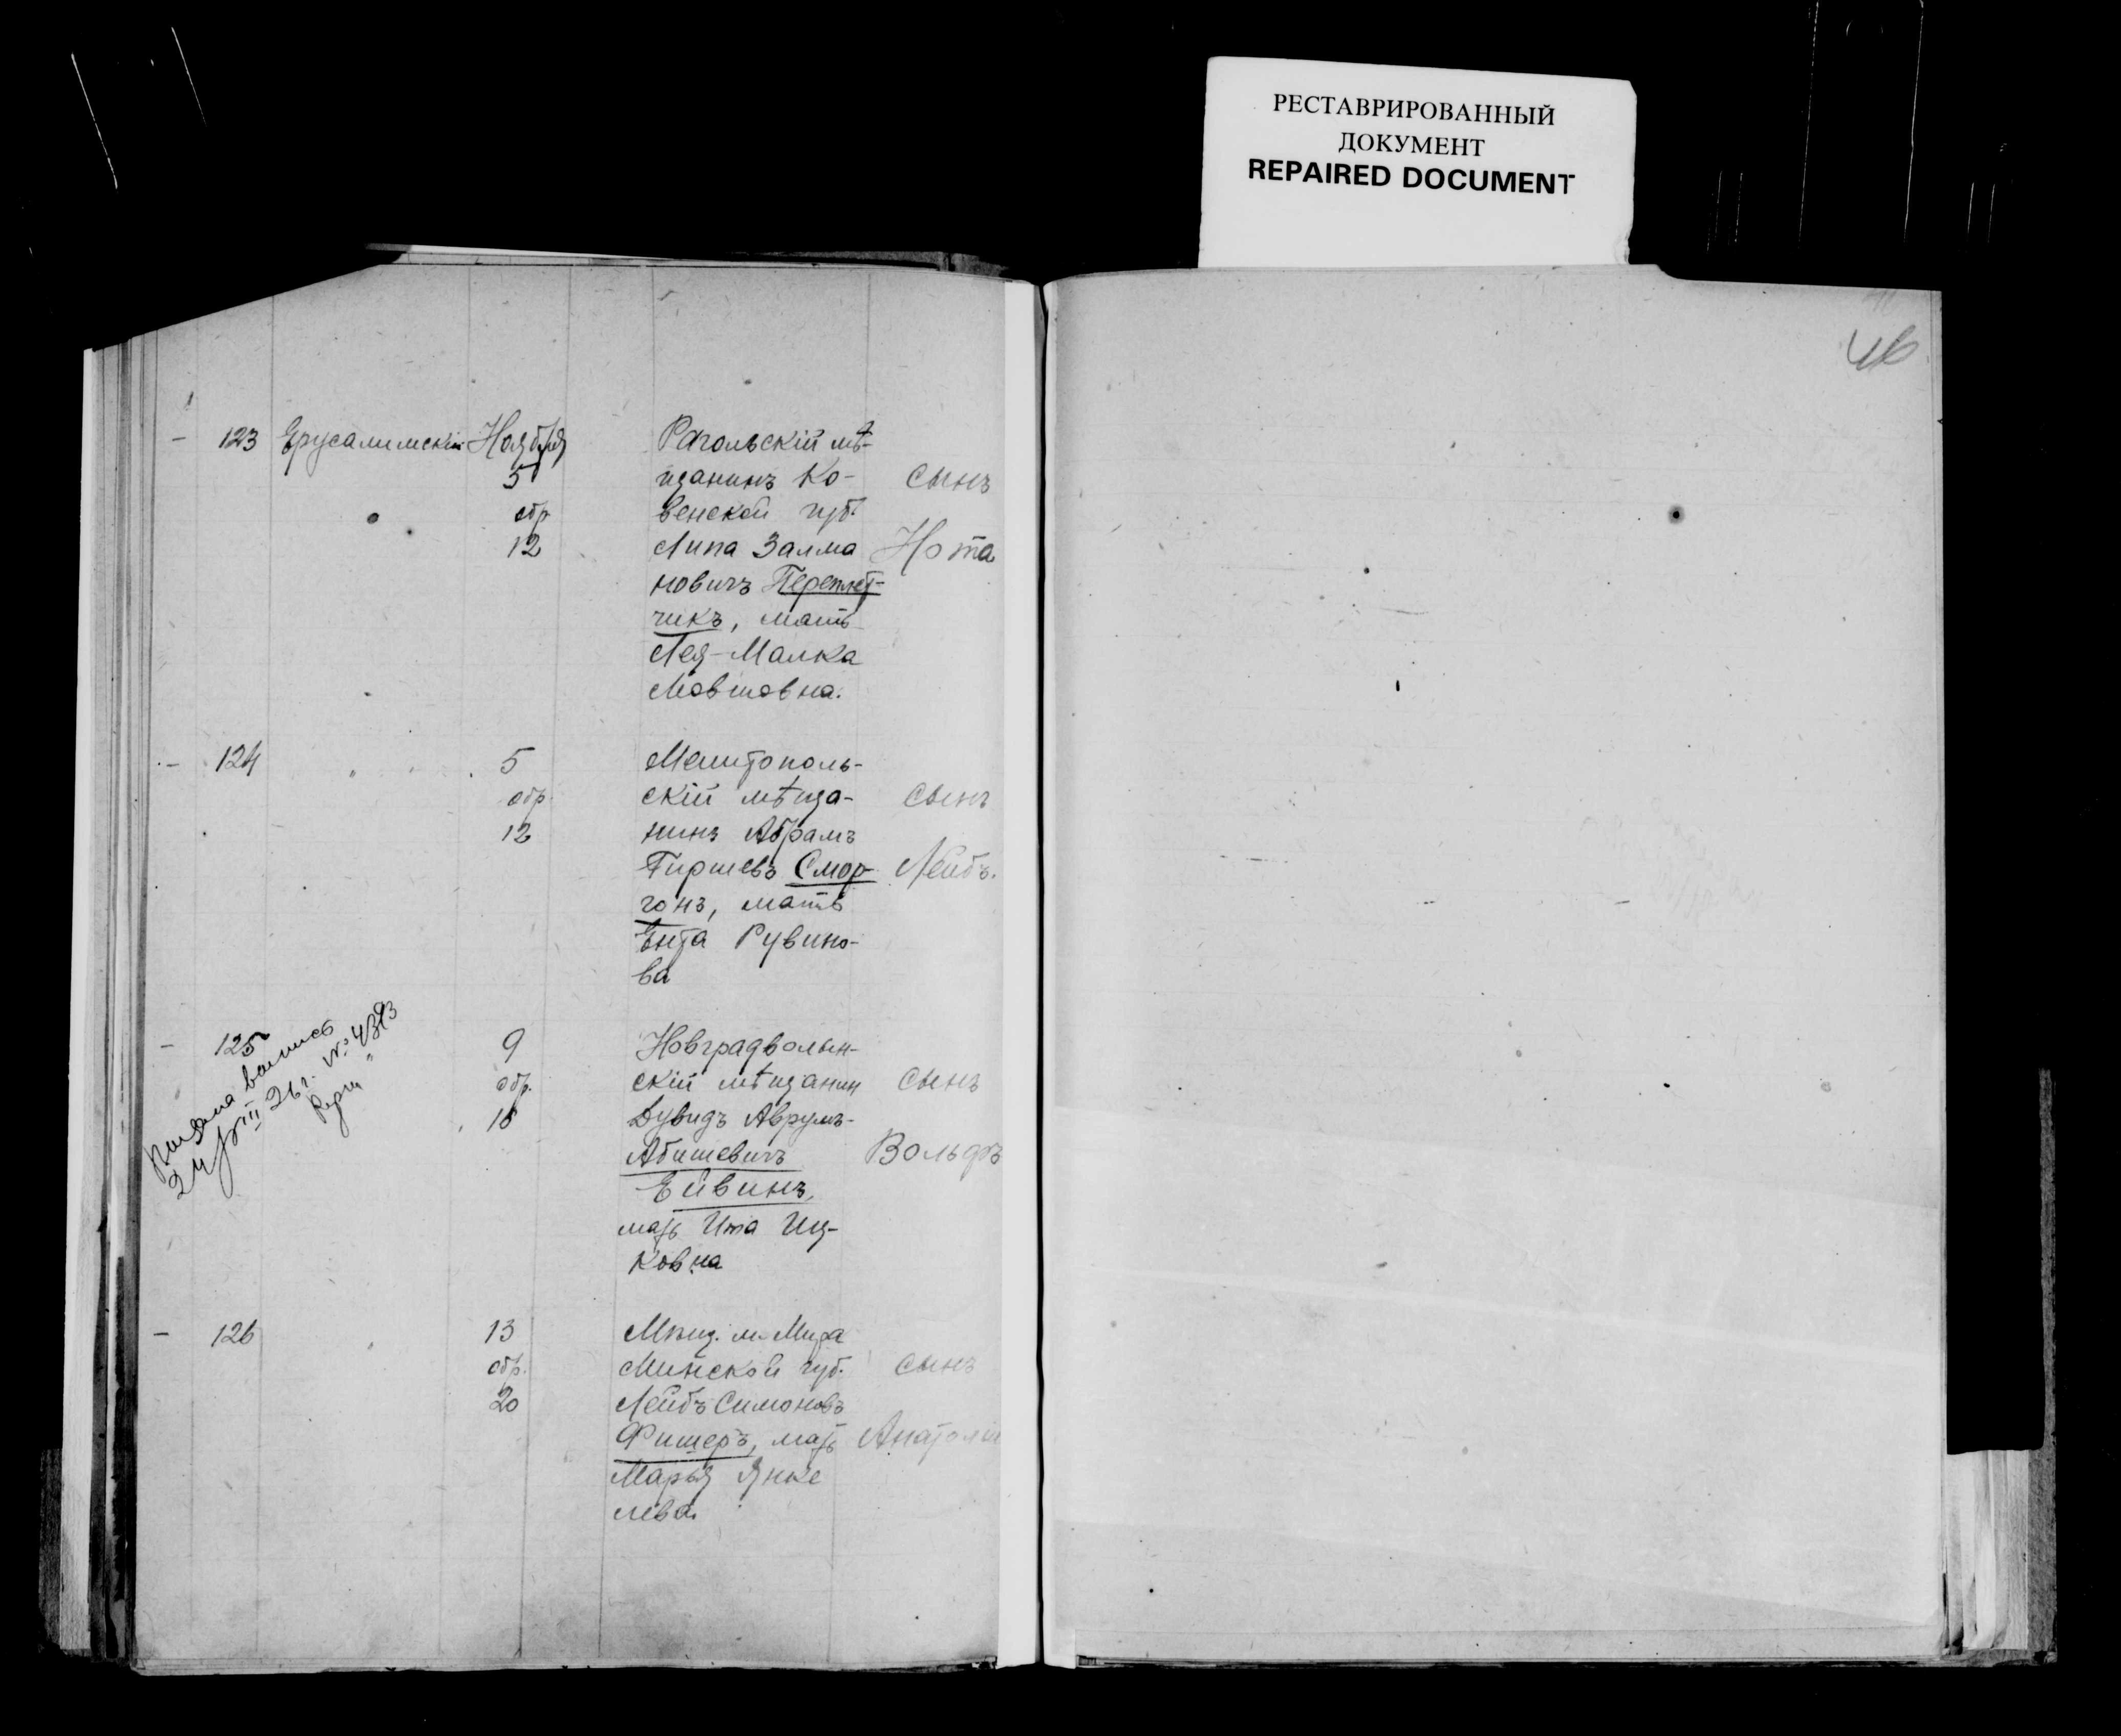 РЕСТАВРИРОВАННЫЙ
ДОКУМЕНТ
REPAIRED DOCUMENT
46
123 Ерусалимскій Ноября
5
обр
12
Рагольскій мѣ-
щанинъ Ко-
венской губ.
Липа Залма
новичъ Переплет-
чикъ, мать
Лея-Малка
Мовшовна.
сынъ
Нота
124 " 5
обр.
12
Мелитополь-
скій мѣща-
нинъ Абрамъ
Гиршевъ Смор-
гонъ, мать
Ента Рувино-
ва
сынъ
Лейбъ.
125 9
обр.
18
Новградволын-
скій мѣщанин
Дувидъ Аврумъ-
Абишевичъ
Ейвинъ,
мать Ита Иц-
ковна
сынъ
Вольфъ
выпись
24/VIII 26 г. № 4393
126 13
обр.
20
Мѣщ. м. Мира
Минской губ.
Лейбъ Симоновъ
Фишеръ, мать
Марья Янке
лева.
сынъ
Анатолій